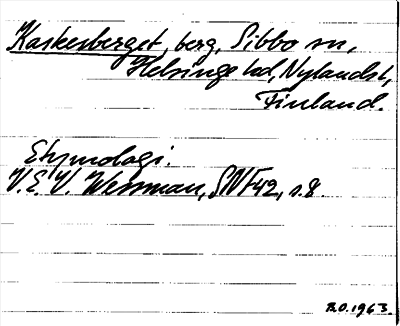 Kaskesberget, berg, Sibbo sn,
Helsinge hd, Nylands l,
Finland.
Etymologi.
V. E. V. Wessman, SNF 42, s. 8.
B.O. 1963.